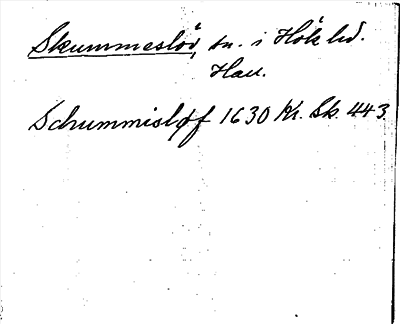 Skummeslöv, sn. i Höks hd.
Hall.
Schummisløf 1630 Kr. Sk. 443